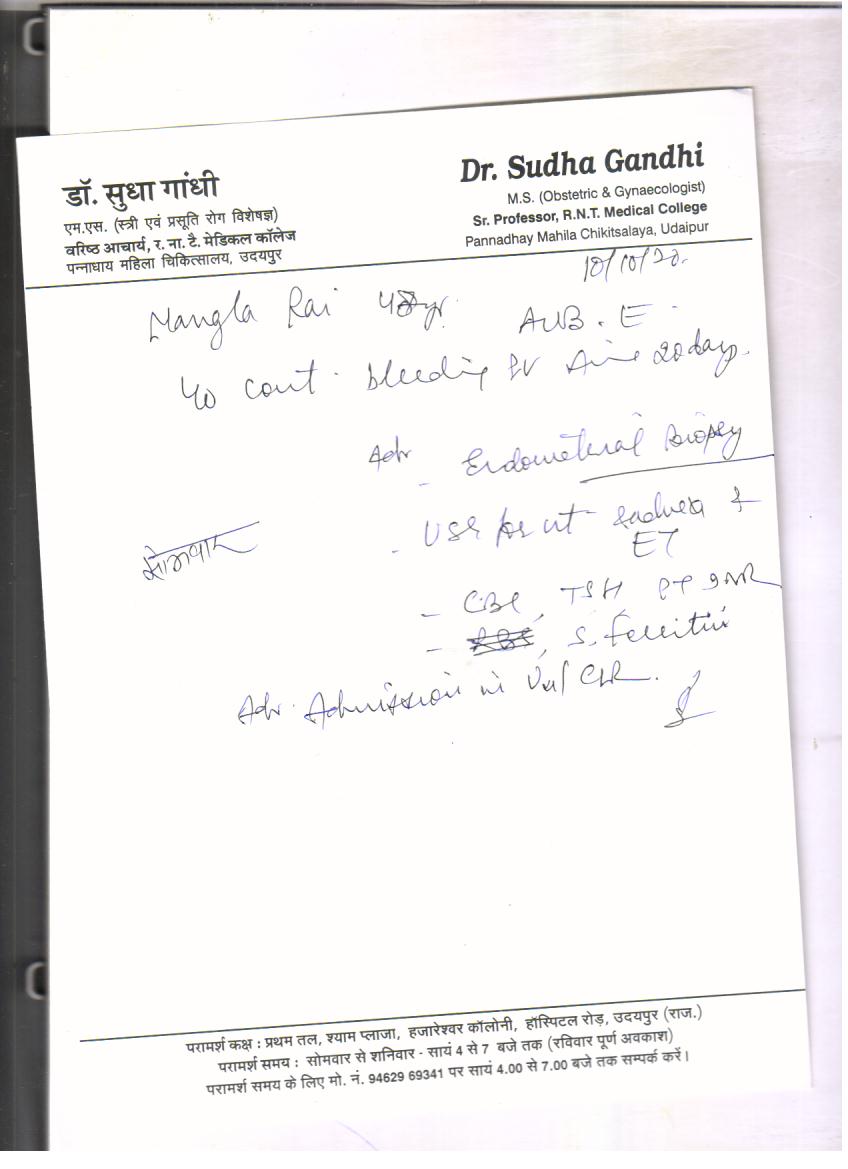 डॉ. सुधा गांधी
एम.एस. (स्त्री एवं प्रसूति रोग विशेषज्ञ)
वरिष्ठ आचार्य, र. ना. टै. मेडिकल कॉलेज
पन्नाधाय महिला चिकित्सालय, उदयपुर
Dr. Sudha Gandhi
M.S. (Obstetric & Gynaecologist)
Sr. Professor, R.N.T. Medical College
Pannadhay Mahila Chikitsalaya, Udaipur
10/10/20.
Mangla Rai
AUB. E
cont. bleeding PV since 20 days.
Adv
- Endometerial Biopsy
- USG for ut &
ET
सोमवार
- CBC, TSH PT INR
- S. Ferritin
Adv. Admission in
परामर्श कक्ष : प्रथम तल, श्याम प्लाजा, हजारेश्वर कॉलोनी, हॉस्पिटल रोड़, उदयपुर (राज.)
परामर्श समय : सोमवार से शनिवार - सायं 4 से 7 बजे तक (रविवार पूर्ण अवकाश)
परामर्श समय के लिए मो. नं. 94629 69341 पर सायं 4.00 से 7.00 बजे तक सम्पर्क करें।